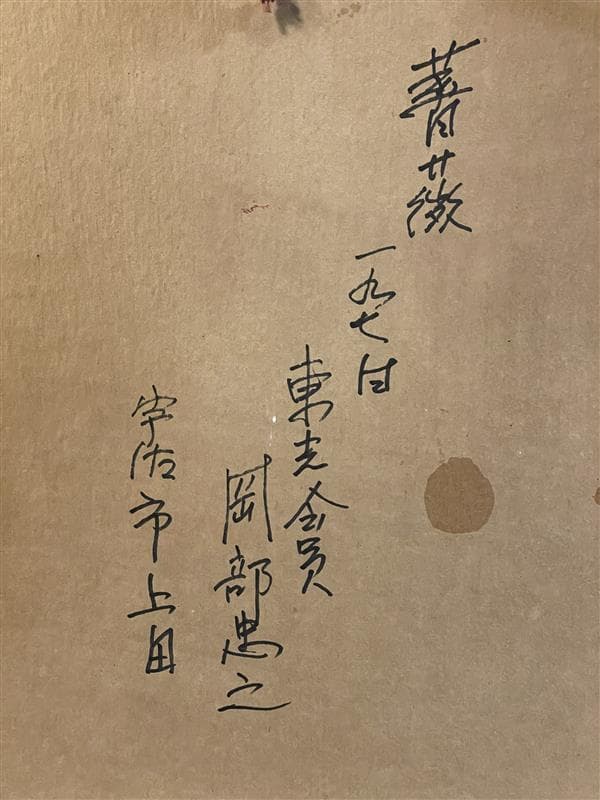 薔薇
一九七
東光会員
岡部忠之
宇佐市上田